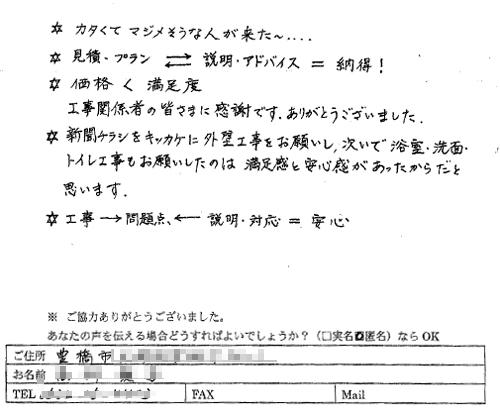 ☆ カタくて マジメそうな人が来た〜....
☆ 見積・プラン ⇄ 説明・アドバイス = 納得!
☆ 価格 < 満足度
工事関係者の皆さまに感謝です.ありがとうございました.
☆ 新聞チラシをキッカケに外壁工事をお願いし,次いで浴室・洗面・
トイレ工事もお願いしたのは 満足感と安心感があったからだと
思います.
☆ 工事 → 問題点 ← 説明・対応 = 安心
※ ご協力ありがとうございました。
あなたの声を伝える場合どうすればよいでしょうか?(□実名☑匿名)ならOK
ご住所 豊橋市
お名前
TEL FAX Mail